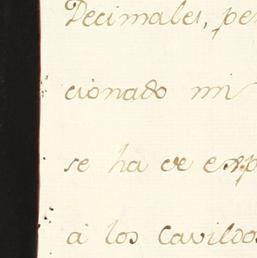 Decimales, pe
cionado mi
se ha de exp
a los Cavildos